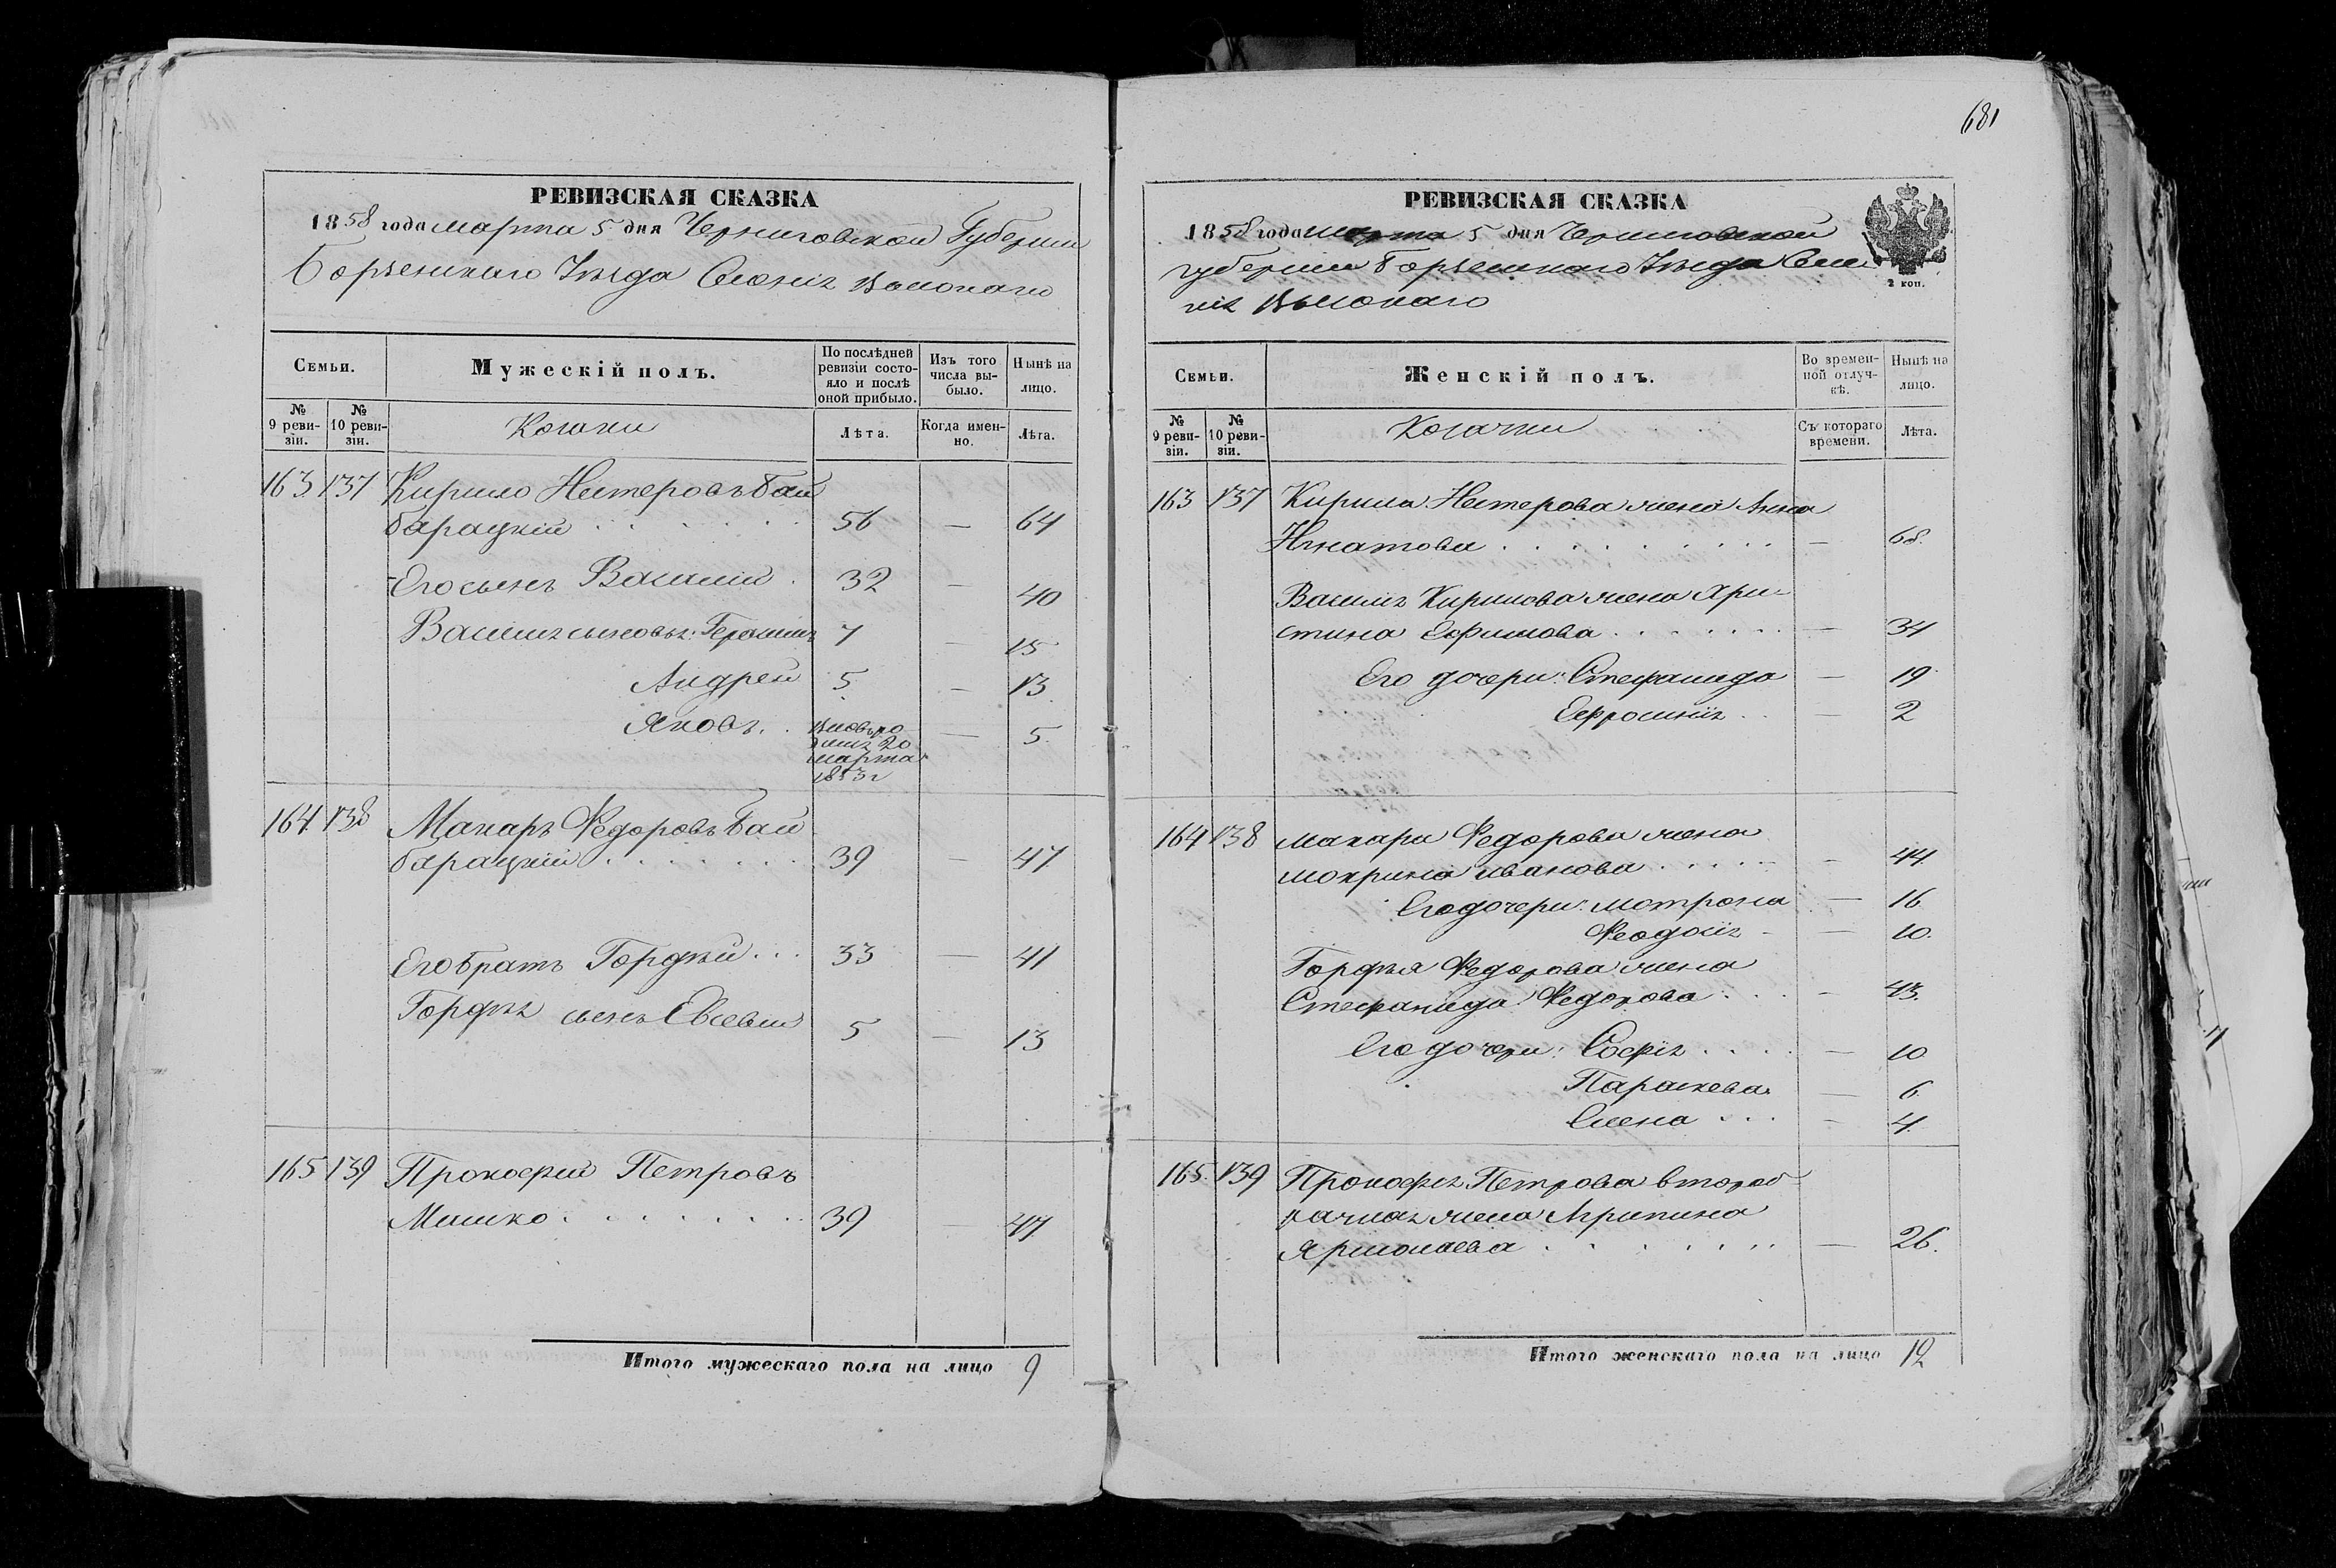 681
РЕВИЗСКАЯ СКАЗКА
1858 года марта 5 дня Черниговской Губернии
Борзенскаго Уѣзда Селенія Высокаго
Семьи.
Мужескій полъ.
По послѣдней ревизіи состояло и послѣ оной прибыло.
Изъ того числа выбыло.
Нынѣ на лицо.
№ 9 ревизіи.
№ 10 ревизіи.
Козаки
Лѣта.
Когда именно.
Лѣта.
163 137 Кирило Нестеровъ Бай
барацкій 56 — 64
Его сынъ Василій 32 — 40
Василія сыновья: Герасимъ 7 — 15
Андрей 5 — 13
Яковъ вновь ро — 5
дился 20
марта
1853 г
164 138 Макаръ Федоровъ Бай
барацкій 39 — 47
Его братъ Гордѣй 33 — 41
Гордѣя сынъ Евсевій 5 — 13
165 139 Прокофій Петровъ
Мишко 39 47
Итого мужескаго пола на лицо 9
РЕВИЗСКАЯ СКАЗКА
1858 года марта 5 дня Черниговской
губерніи Борзенскаго Уѣзда Селе
нія Высокаго
2 коп.
Семьи.
Женскій полъ.
Во временной отлучкѣ.
Нынѣ на лицо.
№ 9 ревизіи.
№ 10 ревизіи.
Козачки
Съ котораго времени.
Лѣта.
163 137 Кирила Нестерова жена Анна
Игнатова — 68.
Василія Кирилова жена Хри-
стина Ефимова — 34
Его дочери: Стефанида — 19
Ефросинія — 2
164 138 Макара Федорова жена
Мокрина Иванова — 44
Его дочери: Мотрона — 16
Феодосія — 10.
Гордѣя Федорова жена
Стефанида Федорова — 43.
Его дочери: Софія — 10
Параскева — 6
Елена — 4.
165. 139 Прокофія Петрова второб
рачная жена Агрипина
Ярмолаева — 26.
Итого женскаго пола на лицо 12